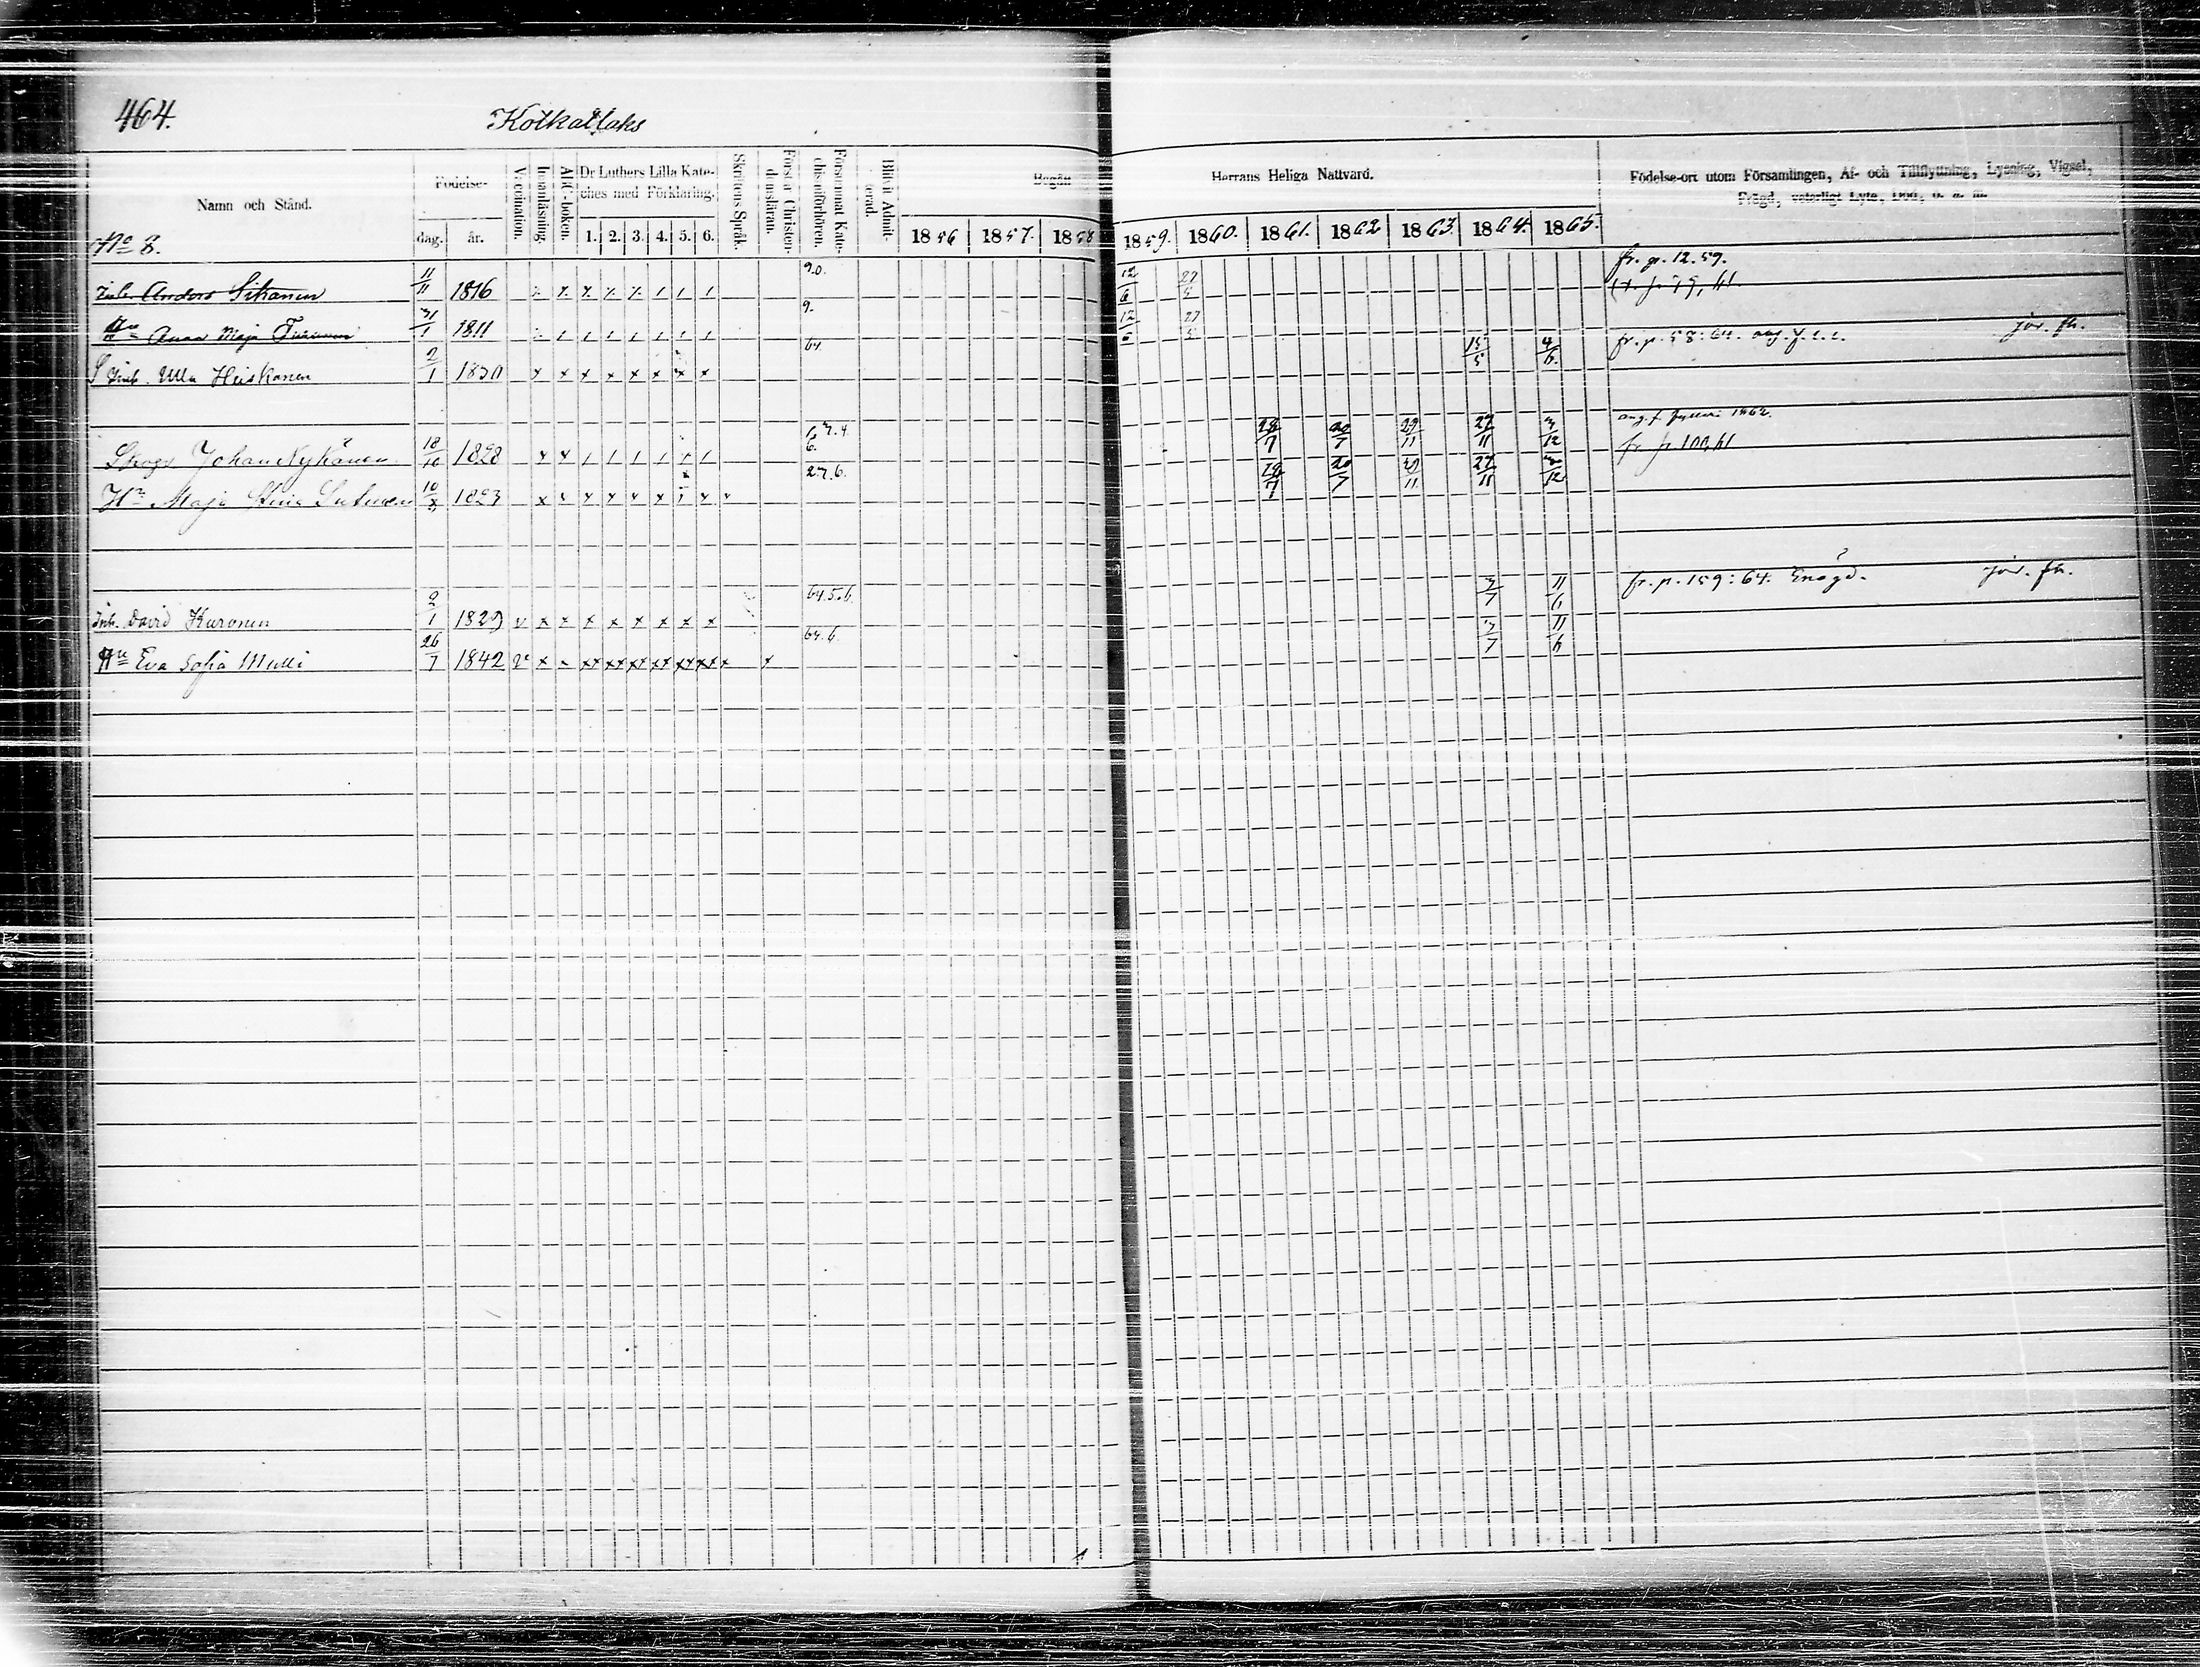 464.
Kotkatlaks
Namn och Stånd.
Födelse-
dag.
år.
Vaccination.
Innanläsning.
ABC-boken.
Dr Luthers Lilla Kate-
ches med Förklaring.
1. 2. 3. 4. 5. 6.
Skriftens Språk.
Första Christen-
domsläran.
Försummat Kate-
chismiförhören.
Blifvit Admit-
terad.
Begått
Herrans Heliga Nattvard.
1856 1857. 1858 1859. 1860. 1861. 1862 1863. 1864. 1865.
Födelse-ort utom Församlingen, Af- och Tillflyttning, Lysning, Vigsel,
Frägd, veterligt Lyte, Död, o. a. m.
No 8.
Inh. Anders Sikanen 11/11 1816 9.0. 12/6 27/5 fr. p. 12. 59.
Hu Anna Maja 31/1 1811 9. 12/6 27/5
Inh. Ulla Heiskanen 2/1 1830 64 15/5 4/6. fr. p. 58: 64.
18/10 Johan Nykänen 1828 6. 28/7 20/7 29/11 27/11 3/12 fr. p. 100, 61
Hu Maja Stina 10/8 1823 27.6. 28/7 20/7 29/11 27/11 3/12
Inh. David Kuronen 2/1 1829 64.5.6. 3/7 11/6 fr. p. 159: 64. Enögd.
Hu Eva Sofia Mulli 26/7 1842 64.6. 3/7 11/6